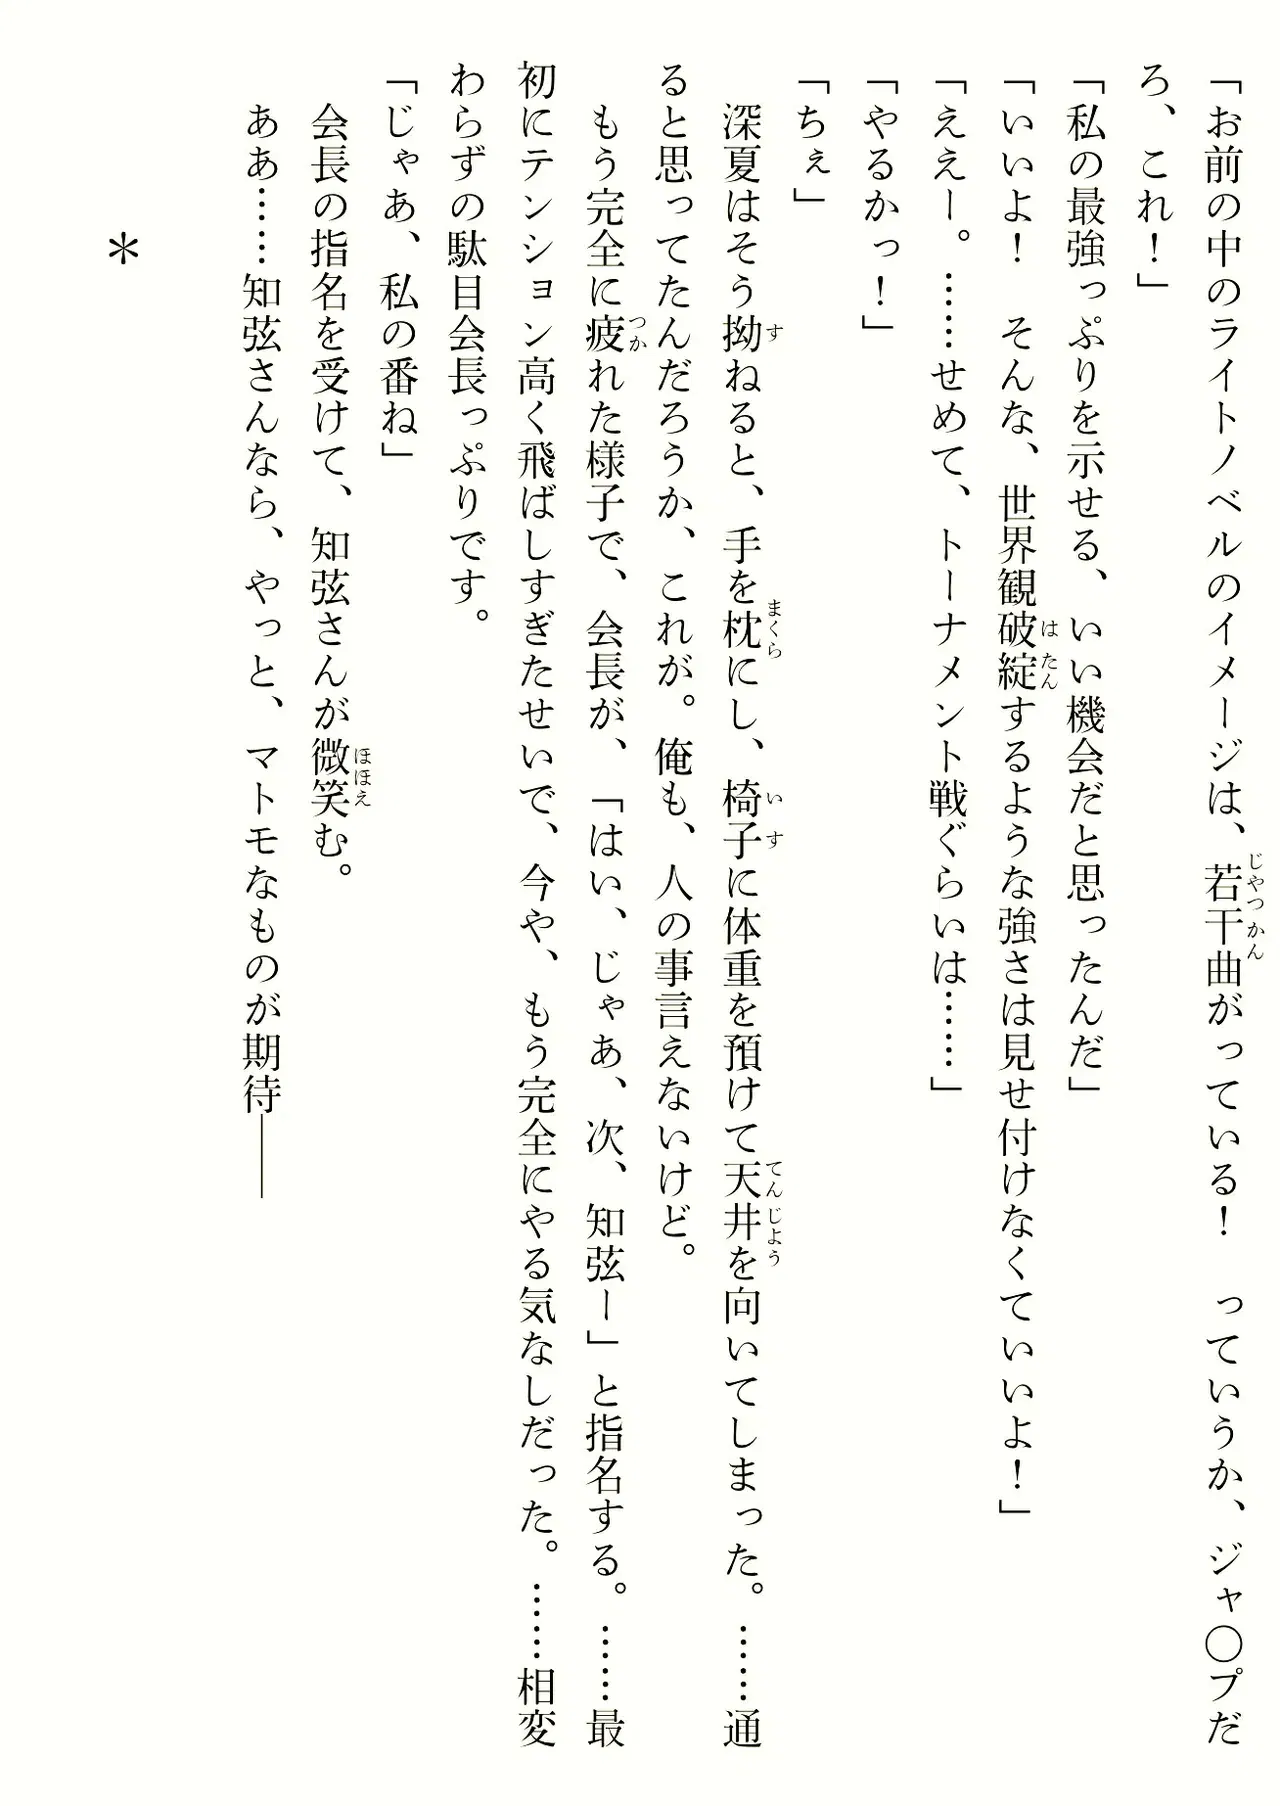 「お前の中のライトノベルのイメージは、若干曲がっている！　っていうか、ジャ〇プだ
ろ、これ！」
「私の最強っぷりを示せる、いい機会だと思ったんだ」
「いいよ！　そんな、世界観破綻するような強さは見せ付けなくていいよ！」
「ええー。……せめて、トーナメント戦ぐらいは……」
「やるかっ！」
「ちぇ」
　深夏はそう拗ねると、手を枕にし、椅子に体重を預けて天井を向いてしまった。……通
ると思ってたんだろうか、これが。俺も、人の事言えないけど。
　もう完全に疲れた様子で、会長が、「はい、じゃあ、次、知弦ー」と指名する。……最
初にテンション高く飛ばしすぎたせいで、今や、もう完全にやる気なしだった。……相変
わらずの駄目会長っぷりです。
「じゃあ、私の番ね」
　会長の指名を受けて、知弦さんが微笑む。
　ああ……知弦さんなら、やっと、マトモなものが期待――
＊